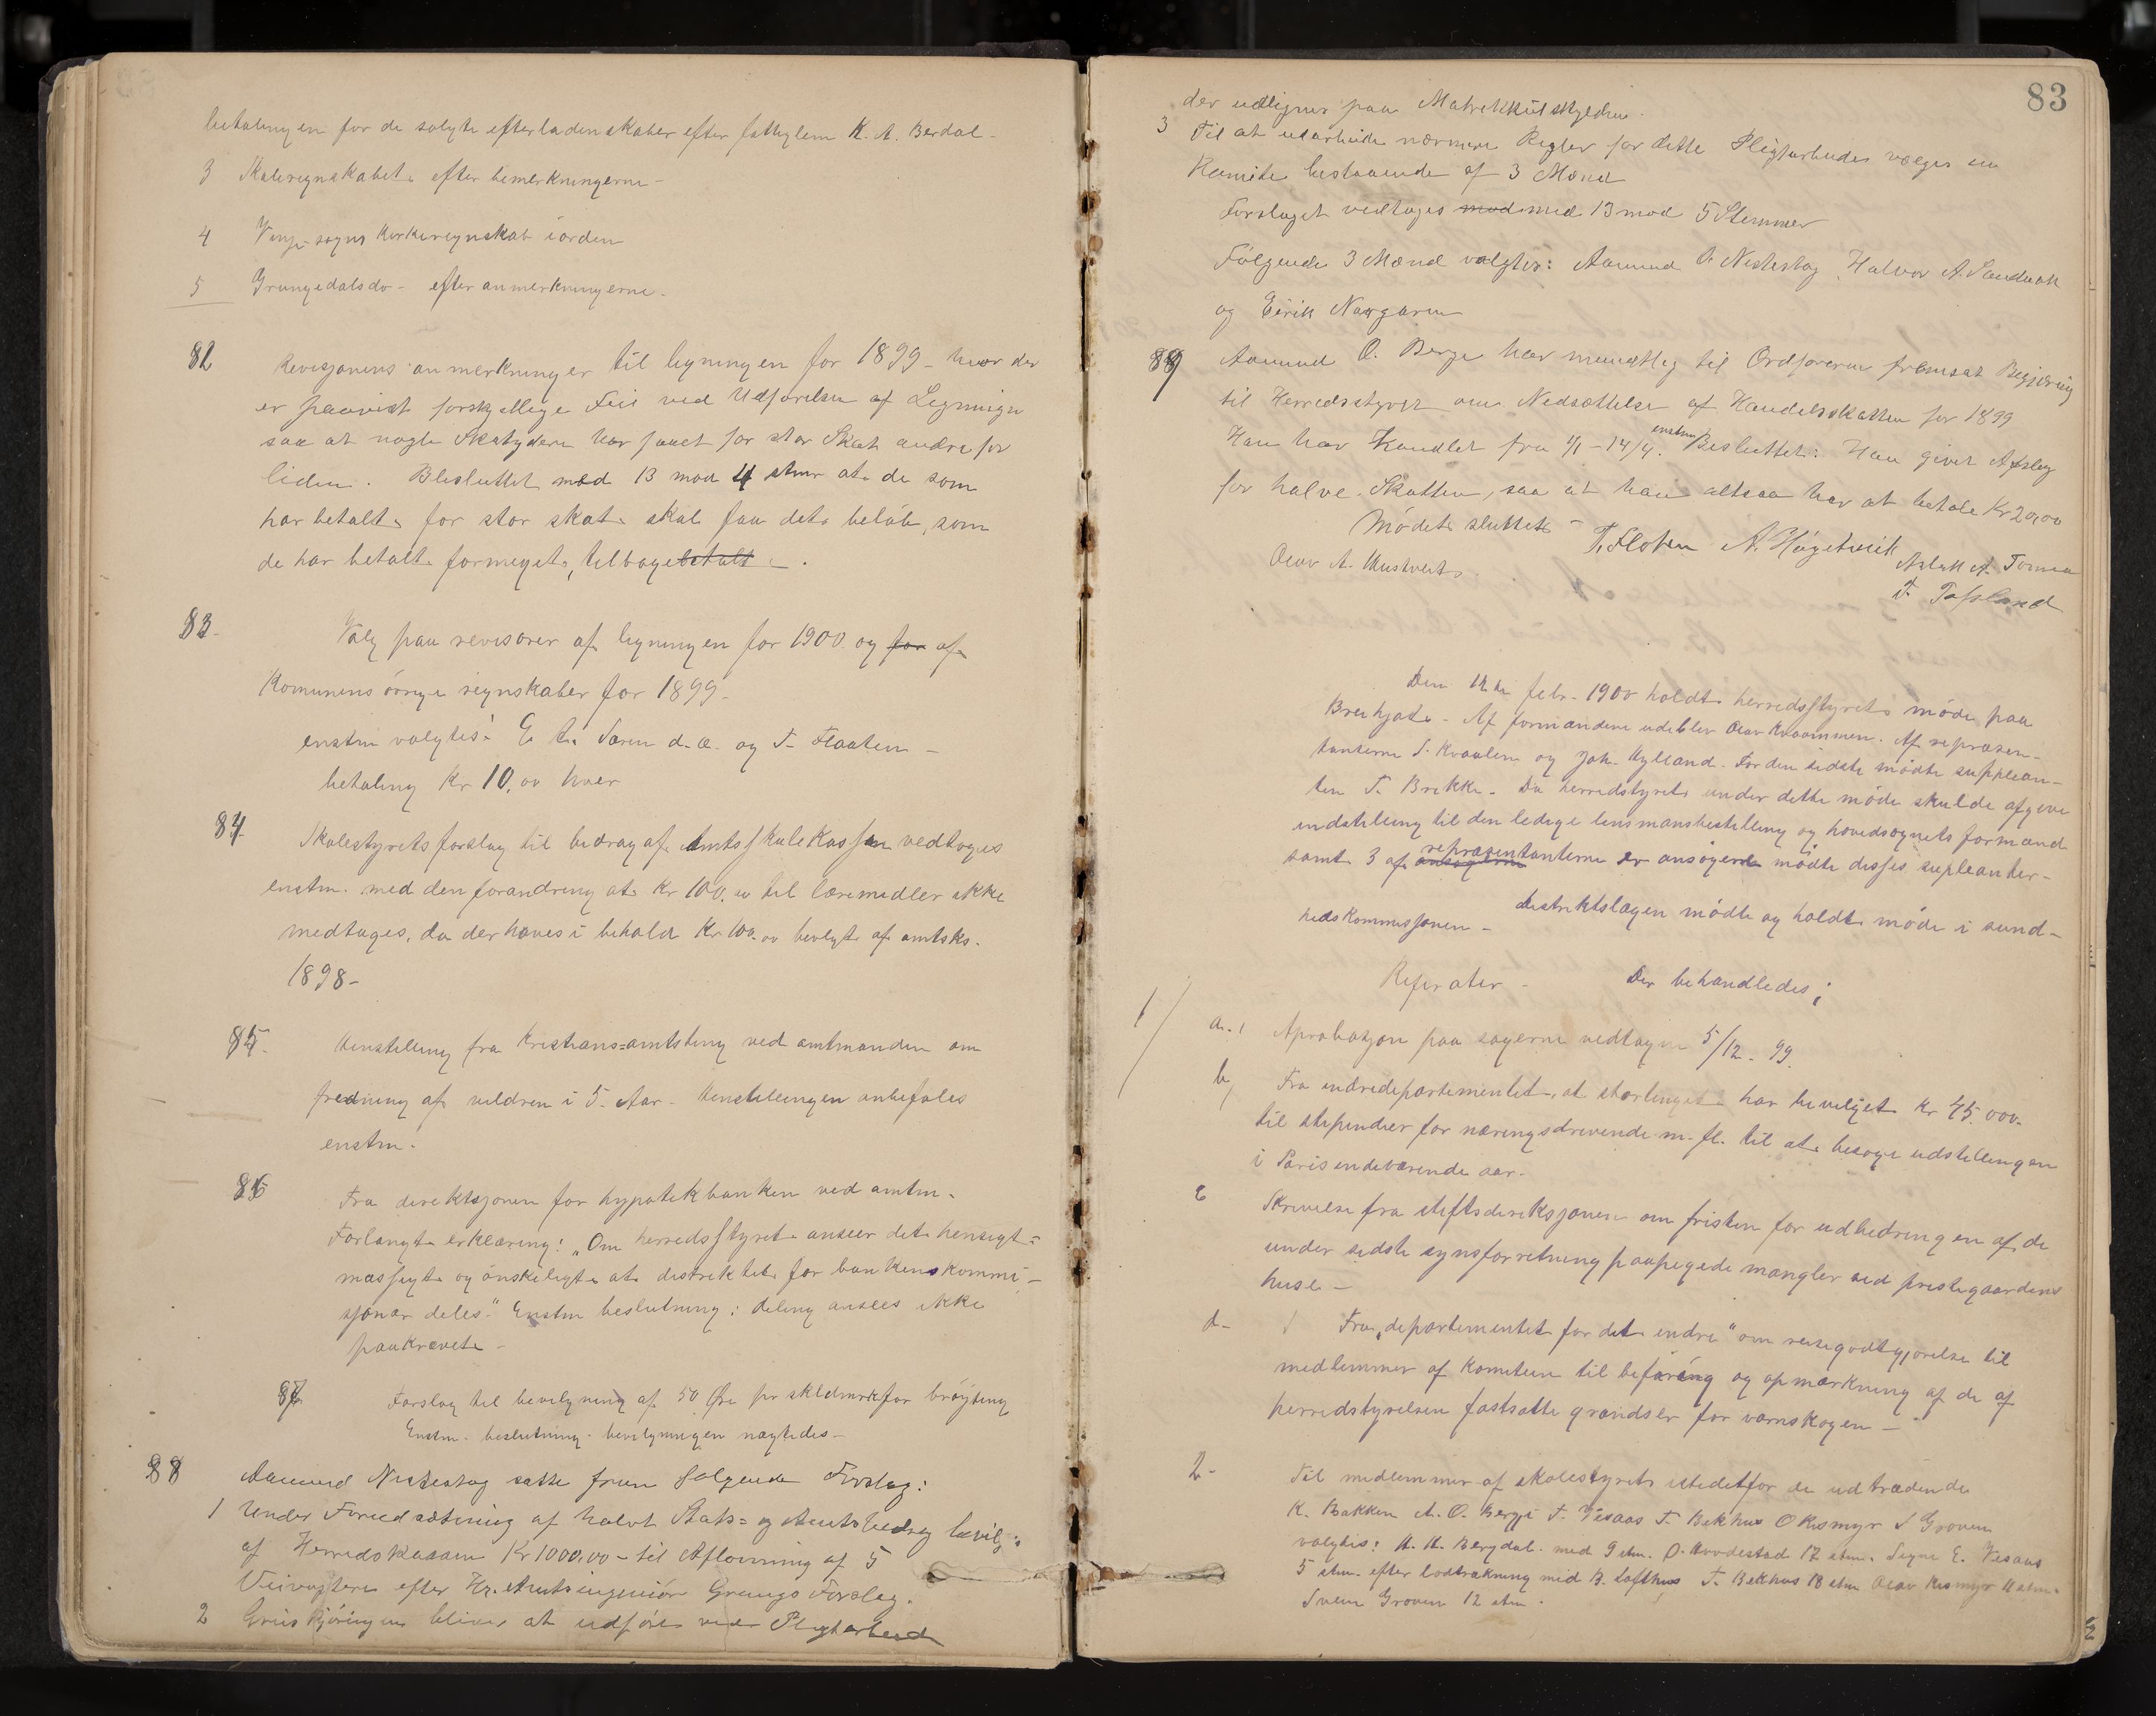 betalingen for de solgte efterladenskaber efter fattiglem K. A. Berdal -
3 Skoleregnskabet efter bemerkningerne -
4 Vinje sogns kirkeregnskab i orden
5 Grungedals do - efter anmerkningerne -
82 Revisjonens anmerkninger til ligningen for 1899 - hvor der
er paavist forskjellige Feil ved Udførelsen af Ligningen
saa at nogle Skatydere har faaet for stor Skat andre for
liden. Besluttet med 13 mod 4 stmr at de som
har betalt for stor skat skal faa det beløb, som
de har betalt formeget, tilbagebetalt.
83. Valg paa revisorer af ligningen for 1900 og for af
Komunens øvrige regnskaber for 1899 -
enstm valgtes: E. E. Særen d.æ. og T. Flaaten -
betaling Kr 10,00 hver
84 Skolestyrets forslag til bidrag af Amtsskolekassen vedtoges
enstm. med den forandring at Kr 100,00 til læremidler ikke
medtages, da der haves i behold Kr 100,00 bevilgt af amtsks.
1898 -
85. Henstilling fra Kristians=amtsting ved amtmanden om
fredning af vildren i 5 Aar - Henstillingen anbefales
enstm.
86 Fra direktsjonen for hypotekbanken ved amtm.
Forlangt erklæring: "Om herredsstyret anseer det hensigt=
mæssigt og ønskeligt at distriktet for bankens kommi-
sjonær deles." Enstm beslutning: deling ansees ikke
paakrævet -
87 Forslag til bevilgning af 50 Øre pr skldmrk for brøyting
Enstm. beslutning. bevilgningen nægtedes -
88 Aamund Nestestog satte frem følgende Forslag:
1 Under Forudsætning af halvt Stats= og Amtsbidrag bevilg:
af Herredskassen Kr 1000,00 - til Aflønning af 5
Veivogtere efter Hr. Amtsingeniør Grangs Forslag.
2 Gruskjøringen bliver at udføre ved Pligtarbeid
83
der udlignes paa Matrikkulskylden.
3 Til at udarbeide nærmere Regler for dette Pligtarbeide vælges en
Komite bestaaende af 3 Mænd
Forslaget vedtages mod med 13 mod 5 Stemmer
Følgende 3 Mænd valgtes: Aamund O. Nestestog, Halvor A. Sandvok
og Eirik Norgaren
89 Aamund O. Berge har mundtlig til Ordføreren fremsat Begjæring
til Herredsstyret om Nedsættelse af Handelsskatten for 1899
Han har Handlet fra 1/1 - 14/4. enstm Besluttet: Han givet Afslag
for halve Skatten, saa at han altsaa har at betale Kr 20,00
Mødet sluttet - T. Floten A. Høgetveit
Olav A. Austveit Aslak A. Tornea
T. Tafsland
Den 12te febr. 1900 holdt herredsstyret møde paa
Breihjat - Af formændene udeblev Olav Kvammen. Af repræsen-
tanterne S. Kvaalen og Joh. Hylland. For den sidste mødte supplean-
ten T. Brekke - Da herredstyret under dette møde skulde afgive
indstilling til den ledige lensmansbestilling og hovedsognets formand
samt 3 af ansøgerne repræsentanterne er ansøgere mødte disses supleanter -
distriktslægen mødte og holdt møde i sund-
hedskommisjonen -
Referater - Der behandledes:
1/ a. Aprobasjon paa sagerne vedtagen 5/12. 99.
b, Fra indredepartementet, at stortinget har bevilget Kr 45.000.
til stipendier for næringsdrivende m. fl. til at besøge udstillingen
i Paris indeværende aar.
c Skrivelse fra stiftsdireksjonen om fristen for udbedringen af de
under sidste synsforretning paapegede mangler ved prestegaardens
huse -
d - Fra "departementet for det indre" om reisegodtgjørelse til
medlemmer af Komiteen til befaring og opmærkning af de af
herredstyrelsen fastsatte grændser for værnskogen -
2 - Til medlemmer af skolestyret istedetfor de udtrædende
K. Bakken A. O. Berge T. Vesaas T. Bekhus O Kismyr S Groven
valgtes: H. H. Bergdal. med 9 stm. O. Hovdestad 17 stm. Signe E. Vesaas
5 stm. efter lodtrækning med B. Lofthus T. Bekhus 18 stm Olav Kismyr 11 stm.
Svein Groven 12 stm.